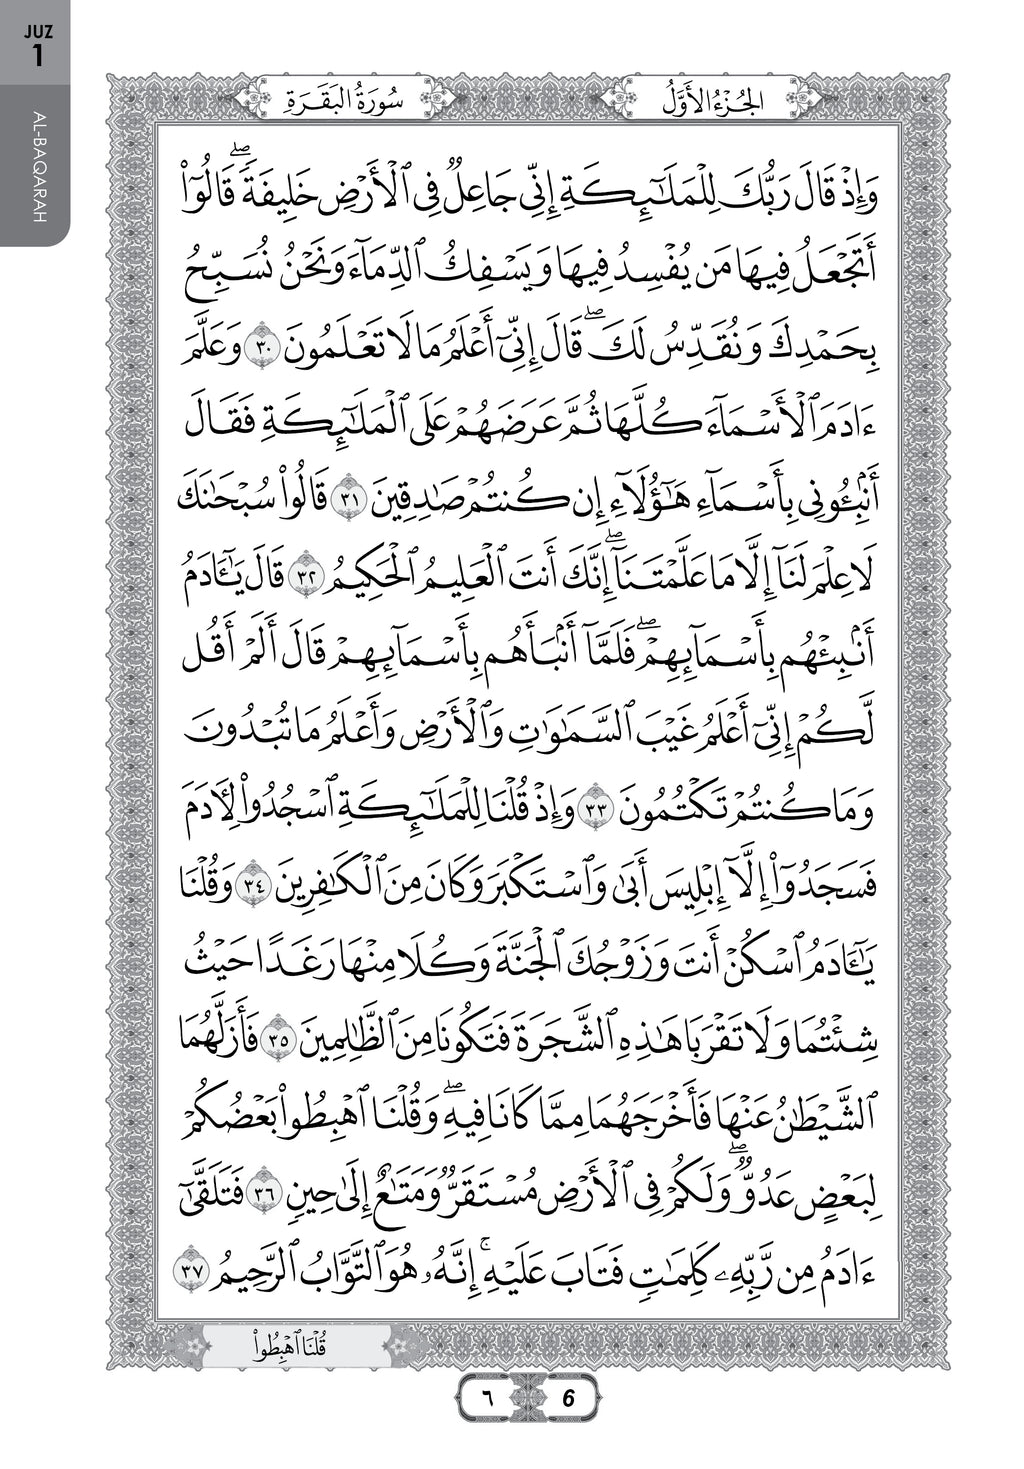 JUZ
1
AL-BAQARAH
الجُزْءُ الأَوَّلُ
سُورَةُ البَقَرَةِ
وَإِذْ قَالَ رَبُّكَ لِلْمَلَٰٓئِكَةِ إِنِّي جَاعِلٌ فِي ٱلْأَرْضِ خَلِيفَةًۖ قَالُوٓا۟
أَتَجْعَلُ فِيهَا مَن يُفْسِدُ فِيهَا وَيَسْفِكُ ٱلدِّمَآءَ وَنَحْنُ نُسَبِّحُ
بِحَمْدِكَ وَنُقَدِّسُ لَكَۖ قَالَ إِنِّيٓ أَعْلَمُ مَا لَا تَعْلَمُونَ ٣٠ وَعَلَّمَ
ءَادَمَ ٱلْأَسْمَآءَ كُلَّهَا ثُمَّ عَرَضَهُمْ عَلَى ٱلْمَلَٰٓئِكَةِ فَقَالَ
أَنۢبِـُٔونِي بِأَسْمَآءِ هَٰٓؤُلَآءِ إِن كُنتُمْ صَٰدِقِينَ ٣١ قَالُوا۟ سُبْحَٰنَكَ
لَا عِلْمَ لَنَآ إِلَّا مَا عَلَّمْتَنَآۖ إِنَّكَ أَنتَ ٱلْعَلِيمُ ٱلْحَكِيمُ ٣٢ قَالَ يَٰٓـَٔادَمُ
أَنۢبِئْهُم بِأَسْمَآئِهِمْۖ فَلَمَّآ أَنۢبَأَهُم بِأَسْمَآئِهِمْ قَالَ أَلَمْ أَقُل
لَّكُمْ إِنِّيٓ أَعْلَمُ غَيْبَ ٱلسَّمَٰوَٰتِ وَٱلْأَرْضِ وَأَعْلَمُ مَا تُبْدُونَ
وَمَا كُنتُمْ تَكْتُمُونَ ٣٣ وَإِذْ قُلْنَا لِلْمَلَٰٓئِكَةِ ٱسْجُدُوا۟ لِـَٔادَمَ
فَسَجَدُوٓا۟ إِلَّآ إِبْلِيسَ أَبَىٰ وَٱسْتَكْبَرَ وَكَانَ مِنَ ٱلْكَٰفِرِينَ ٣٤ وَقُلْنَا
يَٰٓـَٔادَمُ ٱسْكُنْ أَنتَ وَزَوْجُكَ ٱلْجَنَّةَ وَكُلَا مِنْهَا رَغَدًا حَيْثُ
شِئْتُمَا وَلَا تَقْرَبَا هَٰذِهِ ٱلشَّجَرَةَ فَتَكُونَا مِنَ ٱلظَّٰلِمِينَ ٣٥ فَأَزَلَّهُمَا
ٱلشَّيْطَٰنُ عَنْهَا فَأَخْرَجَهُمَا مِمَّا كَانَا فِيهِۖ وَقُلْنَا ٱهْبِطُوا۟ بَعْضُكُمْ
لِبَعْضٍ عَدُوٌّۖ وَلَكُمْ فِي ٱلْأَرْضِ مُسْتَقَرٌّ وَمَتَٰعٌ إِلَىٰ حِينٍ ٣٦ فَتَلَقَّىٰٓ
ءَادَمُ مِن رَّبِّهِۦ كَلِمَٰتٍ فَتَابَ عَلَيْهِۚ إِنَّهُۥ هُوَ ٱلتَّوَّابُ ٱلرَّحِيمُ ٣٧
قُلْنَا ٱهْبِطُوا۟
٦ 6